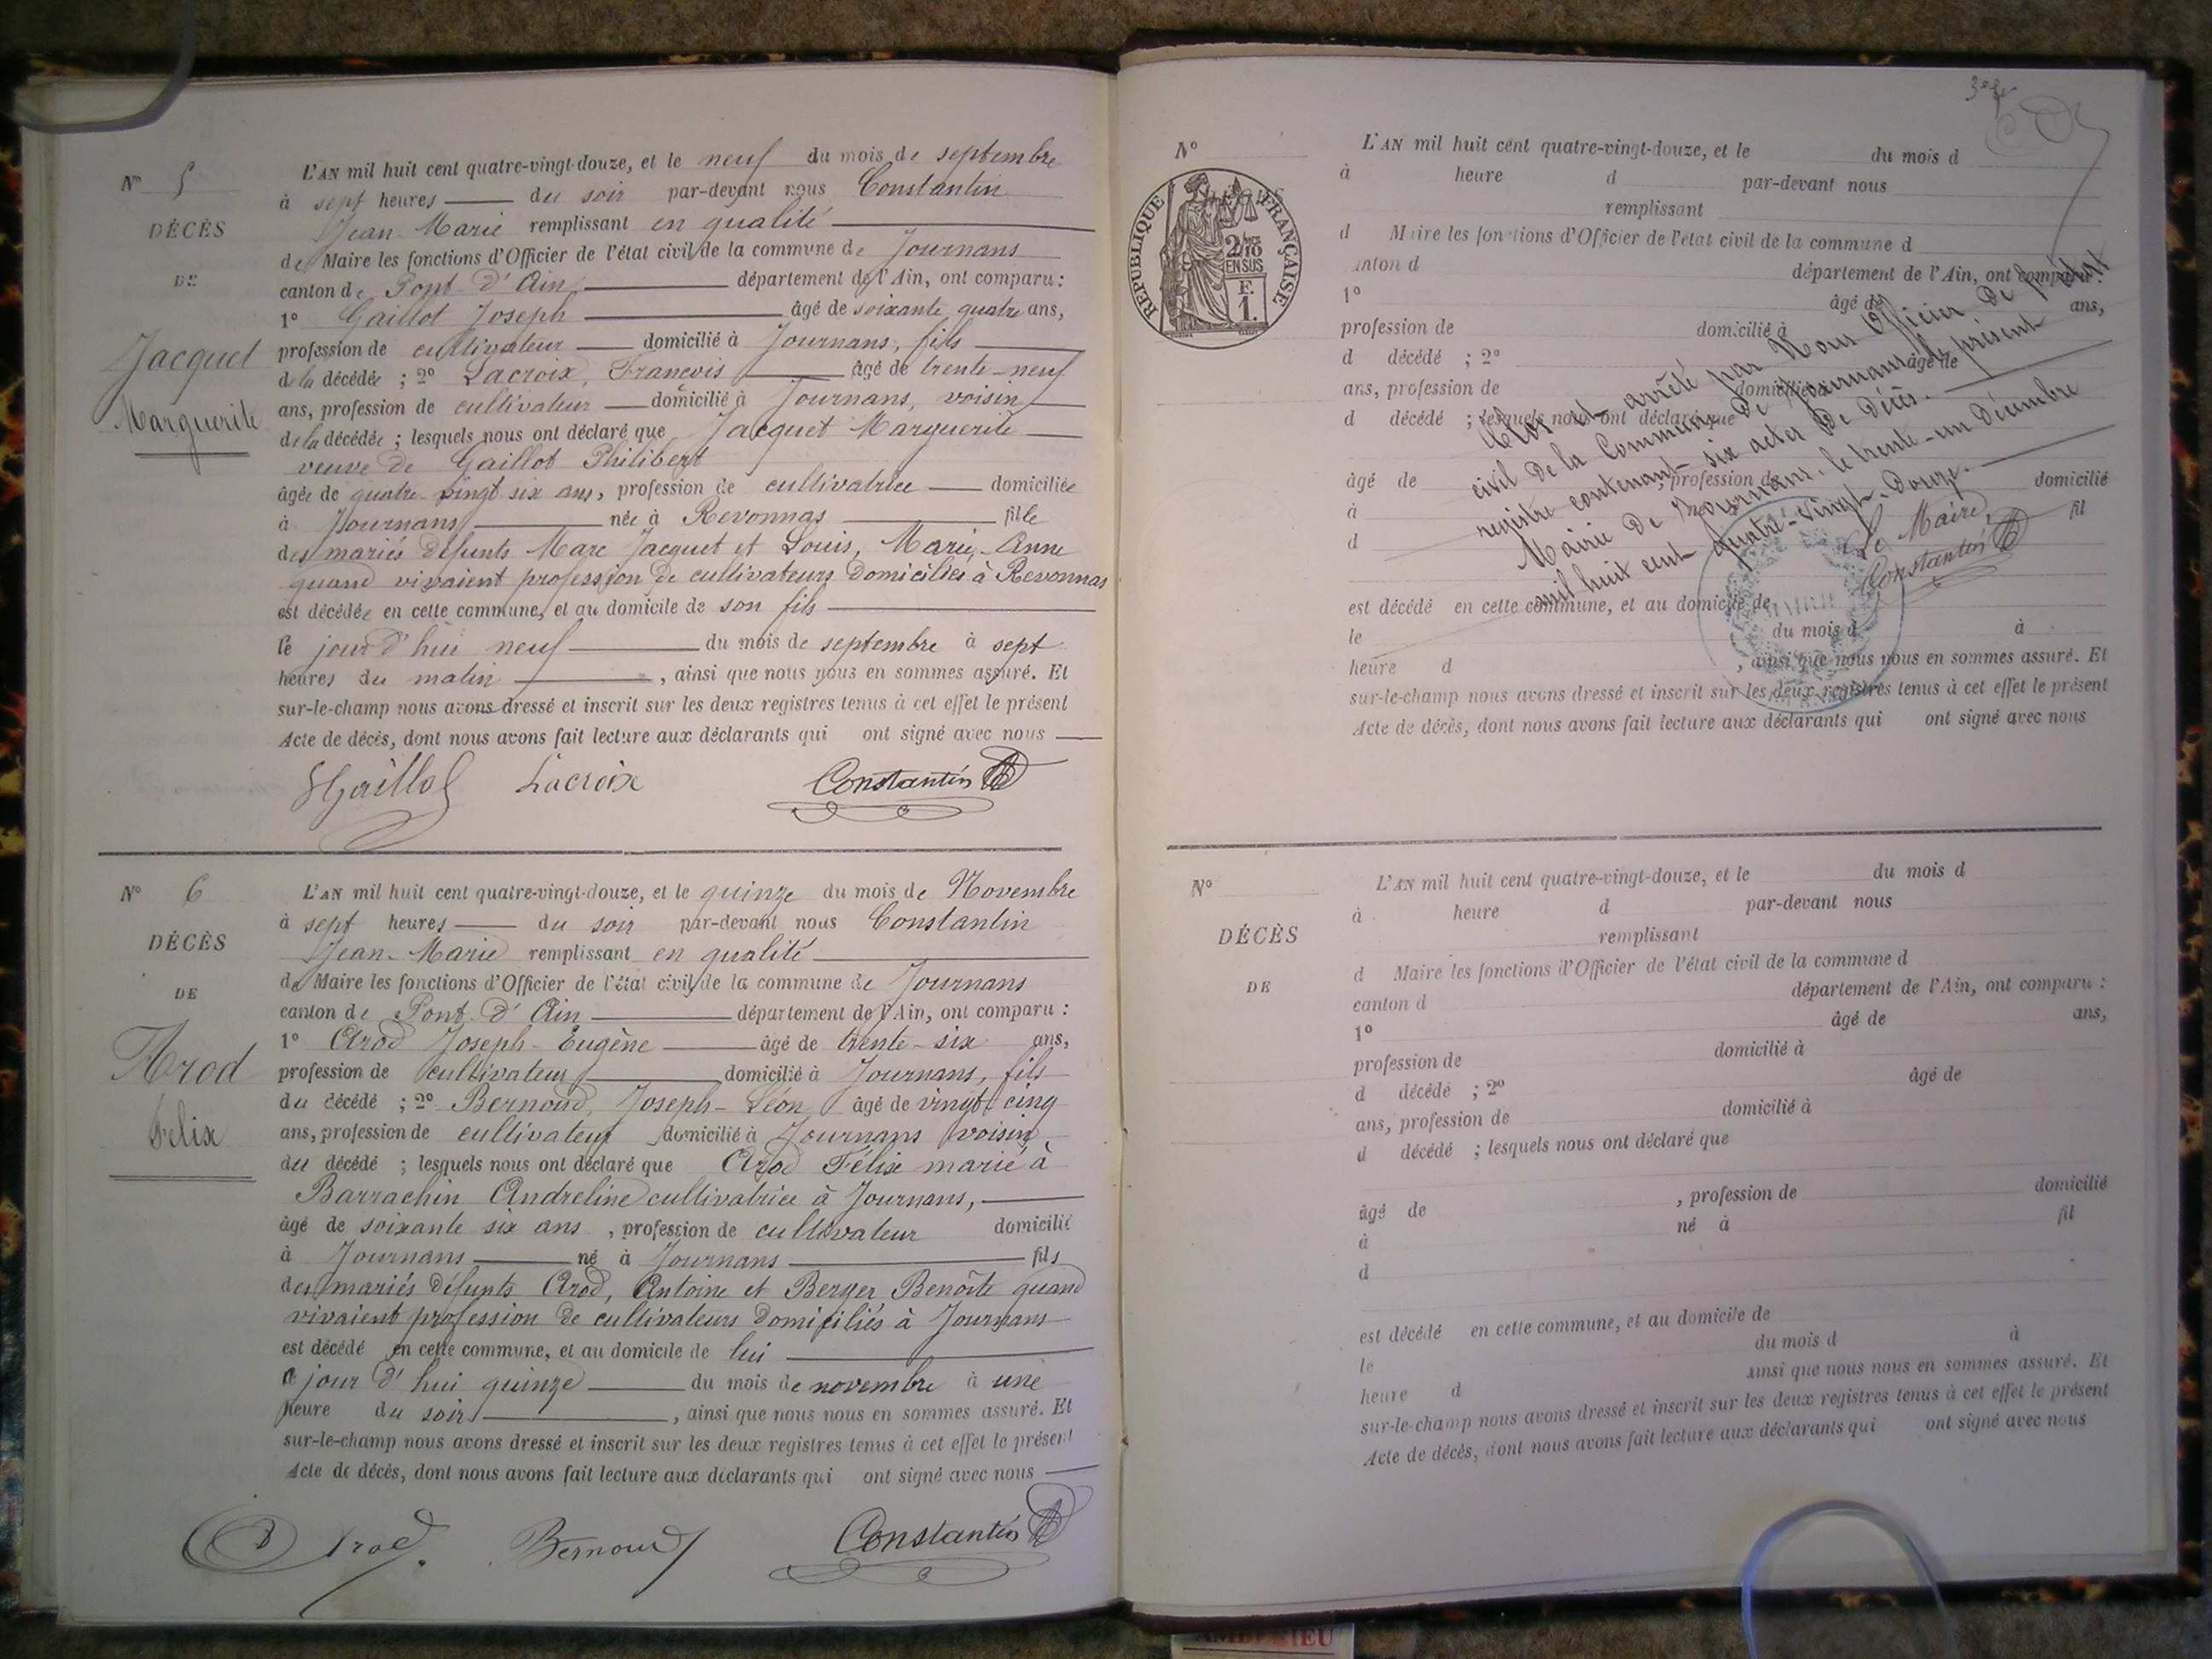 N° 5
DÉCÈS
DE
Jacquet
Marguerite
L'AN mil huit cent quatre-vingt-douze, et le neuf du mois de septembre
à sept heures du soir par-devant nous Constantin
Jean-Marie remplissant en qualité
de Maire les fonctions d'Officier de l'état civil de la commune de Journans
canton de Pont d'Ain département de l'Ain, ont comparu :
1° Gaillot Joseph âgé de soixante quatre ans,
profession de cultivateur domicilié à Journans, fils
de la décédée ; 2° Lacroix, Francois âgé de trente-neuf
ans, profession de cultivateur domicilié à Journans, voisin
de la décédée ; lesquels nous ont déclaré que Jacquet Marguerite
veuve de Gaillot Philibert
âgée de quatre-vingt six ans, profession de cultivatrice domiciliée
à Journans née à Revonnas fille
des mariés défunts Marc Jacquet et Louis, Marie-Anne
quand vivaient profession de cultivateurs domiciliés à Revonnas
est décédée en cette commune, et au domicile de son fils
le jour d'hui neuf du mois de septembre à sept
heures du matin , ainsi que nous nous en sommes assuré. Et
sur-le-champ nous avons dressé et inscrit sur les deux registres tenus à cet effet le présent
Acte de décès, dont nous avons fait lecture aux déclarants qui ont signé avec nous
Gaillot Lacroix Constantin
N° 6
DÉCÈS
DE
Arod
Félix
L'AN mil huit cent quatre-vingt-douze, et le quinze du mois de Novembre
à sept heures du soir par-devant nous Constantin
Jean-Marie remplissant en qualité
de Maire les fonctions d'Officier de l'état civil de la commune de Journans
canton de Pont d'Ain département de l'Ain, ont comparu :
1° Arod Joseph-Eugène âgé de trente-six ans,
profession de cultivateur domicilié à Journans, fils
du décédé ; 2° Bernoud, Joseph-Léon âgé de vingt cinq
ans, profession de cultivateur domicilié à Journans voisin,
du décédé ; lesquels nous ont déclaré que Arod Félix marié à
Barrachin Andreline cultivatrice à Journans,
âgé de soixante six ans , profession de cultivateur domicilié
à Journans né à Journans fils
des mariés défunts Arod, Antoine et Berger Benoîte quand
vivaient profession de cultivateurs domiciliés à Journans
est décédé en cette commune, et au domicile de lui
le jour d'hui quinze du mois de novembre à une
heure du soir , ainsi que nous nous en sommes assuré. Et
sur-le-champ nous avons dressé et inscrit sur les deux registres tenus à cet effet le présent
Acte de décès, dont nous avons fait lecture aux déclarants qui ont signé avec nous
Arod Bernoud Constantin
N°
RÉPUBLIQUE FRANÇAISE
2/10
EN SUS
F.
1.
L'AN mil huit cent quatre-vingt-douze, et le du mois d
à heure d par-devant nous
remplissant
d Maire les fonctions d'Officier de l'état civil de la commune d
canton d département de l'Ain, ont comparu :
1° âgé de ans,
profession de domicilié à
d décédé ; 2° âgé de
ans, profession de domicilié à
d décédé ; lesquels nous ont déclaré que
âgé de , profession de domicilié
à
d fil
est décédé en cette commune, et au domicile de
le du mois d à
heure d , ainsi que nous nous en sommes assuré. Et
sur-le-champ nous avons dressé et inscrit sur les deux registres tenus à cet effet le présent
Acte de décès, dont nous avons fait lecture aux déclarants qui ont signé avec nous
Clos et arrêté par Nous Officier de l'état
civil de la Commune de Journans le présent
registre contenant six actes de décès.
Mairie de Journans, le trente-un décembre
mil huit cent quatre-vingt-douze.
Le Maire,
Constantin
MAIRIE
N°
DÉCÈS
DE
L'AN mil huit cent quatre-vingt-douze, et le du mois d
à heure d par-devant nous
remplissant
d Maire les fonctions d'Officier de l'état civil de la commune d
canton d département de l'Ain, ont comparu :
1° âgé de ans,
profession de domicilié à
d décédé ; 2° âgé de
ans, profession de domicilié à
d décédé ; lesquels nous ont déclaré que
âgé de , profession de domicilié
à né à fil
d
est décédé en cette commune, et au domicile de
le du mois d à
heure d ainsi que nous nous en sommes assuré. Et
sur-le-champ nous avons dressé et inscrit sur les deux registres tenus à cet effet le présent
Acte de décès, dont nous avons fait lecture aux déclarants qui ont signé avec nous